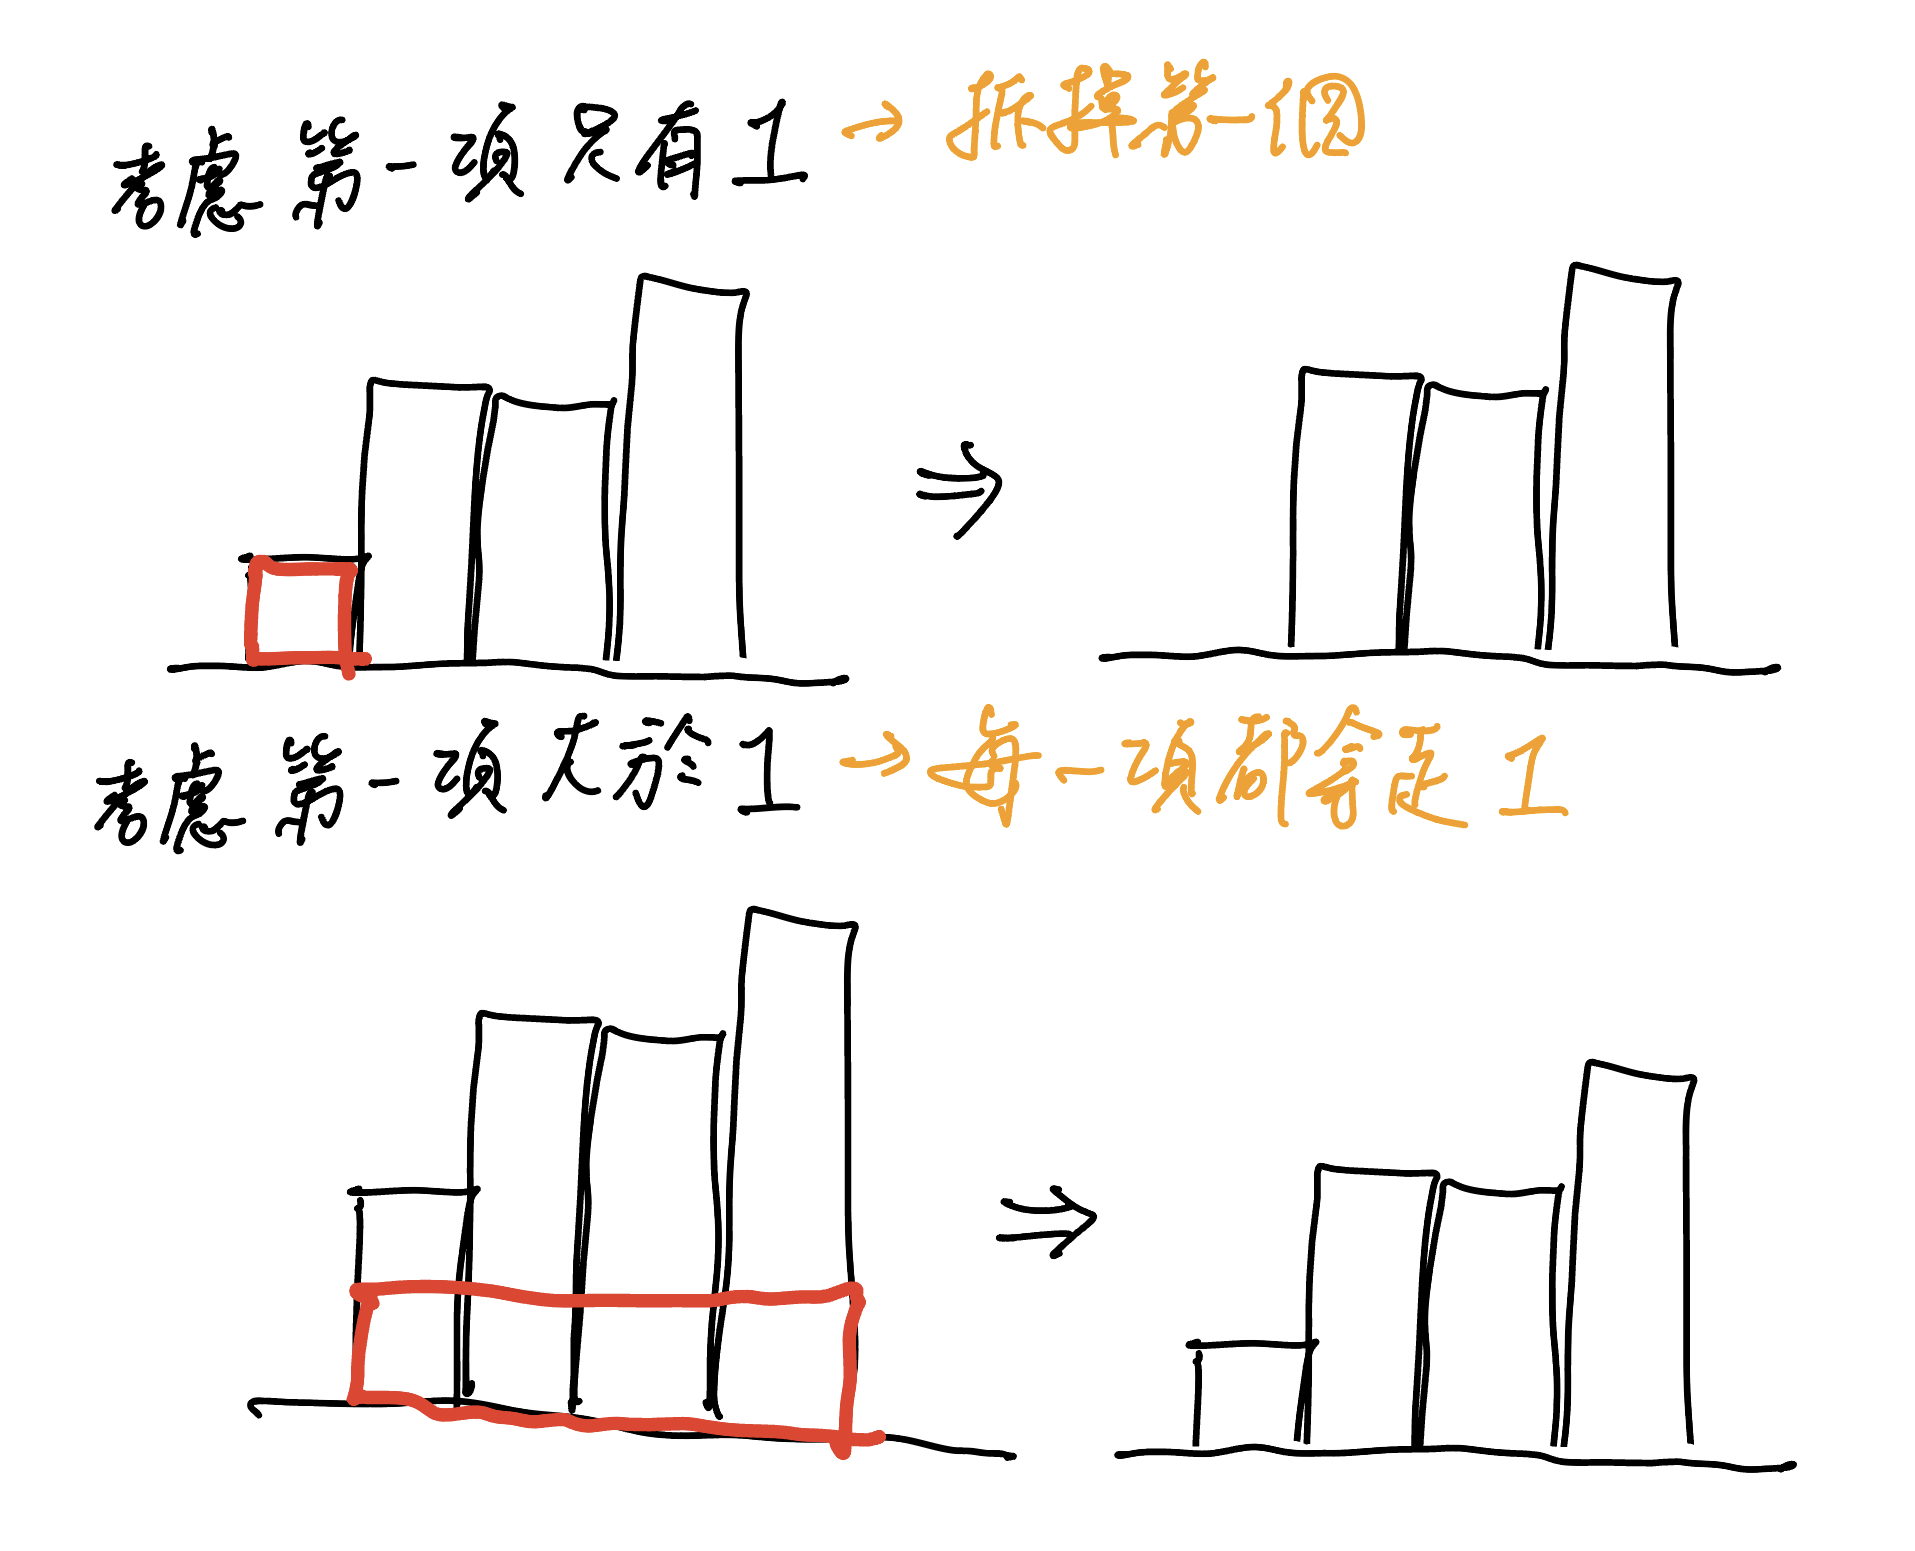 考慮第一項只有1→拆掉第一個
考慮第一項大於1→每一項都拿走1